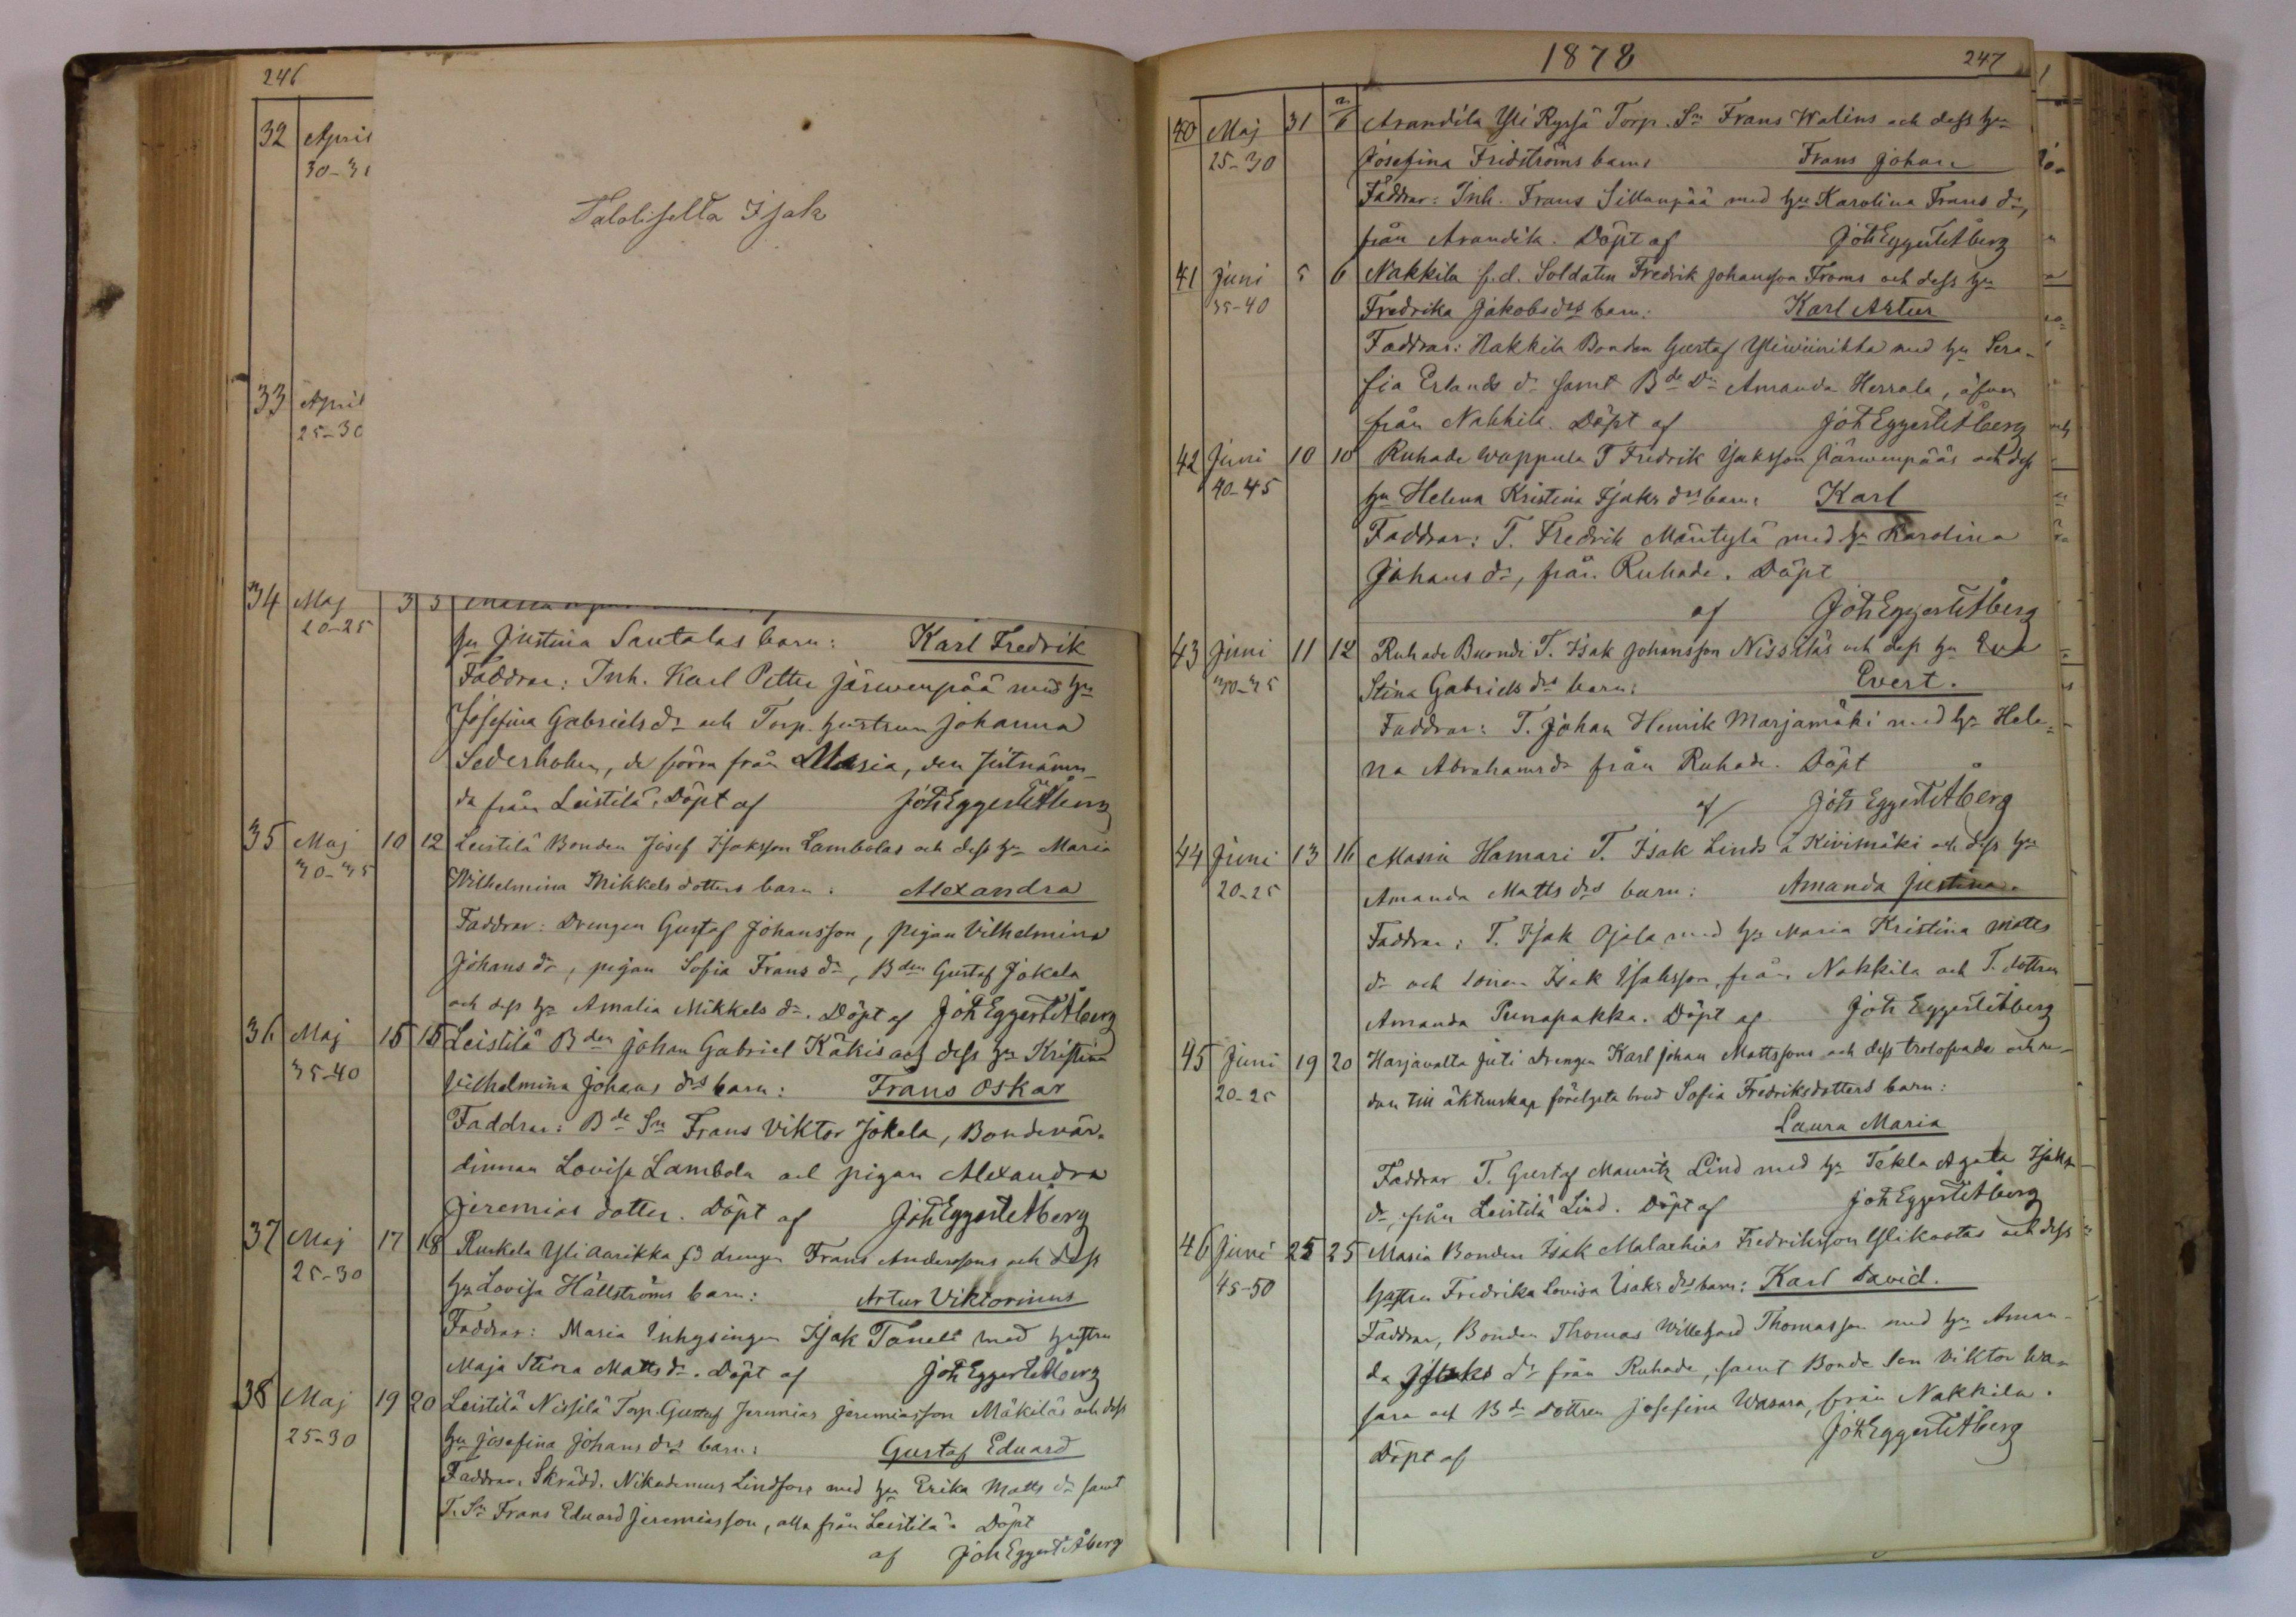 246
32 April
30-3
Talolisella Isak
33 April
25-30
34 Maj 3 5
20-25
hu Justina Santalas barn: Karl Fredrik
Faddrar: Inh. Karl Petter Järwenpää med hu
Josefina Gabriels dr och Torp. hustrun Johanna
Sederholm, de förra från Masia, den sistnämn-
da från Leistilä. Döpt af Joh Eggert Åberg
35 Maj 10 12 Leistilä Bonden Josef Isaksson Lambolas och dess hu Maria
30-35
Wilhelmina Mikkels dotters barn: Alexandra
Faddrar: Drengen Gustaf Johansson, pigan Vilhelmina
Johans dr, pigan Sofia Frans dr, Bden Gustaf Jokela
och dess hu Amalia Mikkels dr. Döpt af Joh Eggert Åberg
36 Maj 15 15 Leistilä Bden Johan Gabriel Käkis och dess hu Kristina
35-40
Vilhelmina Johans drs barn: Frans Oskar
Faddrar: Bde Sn Frans Viktor Jokela, Bondevär-
dinnan Lovisa Lambola och pigan Alexandra
Jeremias dotter. Döpt af Joh Eggert Åberg
37 Maj 17 18 Ruskela Yli Aarikka fd drengen Frans Anderssons och dess
25-30
hu Lovisa Hällströms barn: Artur Viktorinus
Faddrar: Masia Inhysingen Isak Taneli med hustru
Maja Stina Matts dr. Döpt af Joh Eggert Åberg
38 Maj 19 20 Leistilä Nissilä Torp. Gustaf Jeremias Jeremiasson Mäkiläs och dess
25-30
hu Josefina Johans drs barn: Gustaf Eduard
Faddrar: Skrädd. Nikademus Lindfors med hu Erika Matts dr samt
T. Sn Frans Eduard Jeremiasson, alla från Leistilä. Döpt
af Joh Eggert Åberg
1878 247
40 Maj 31 2/6 Arandila Yli Ryssä Torp. Sn Frans Walins och dess hu
25-30
Josefina Fridströms barn: Frans Johan
Faddrar: Inh. Frans Sillanpää med hu Karolina Frans dr,
från Arandila. Döpt af Joh Eggert Åberg
41 Juni 5 6 Nakkila f.d. Soldaten Fredrik Johansson Froms och dess hu
35-40
Fredrika Jakobs drs barn: Karl Artur
Faddrar: Nakkila Bonden Gustaf Yliviinikka med hu Sera-
fia Erlands dr samt Bde Dr Amanda Herrala, äfven
från Nakkila. Döpt af Joh Eggert Åberg
42 Juni 10 10 Ruhade Wappula T Fredrik Isaksson Järwenpääs och dess
40-45
hu Helena Kristina Isaks drs barn: Karl
Faddrar: T. Fredrik Mäntylä med hu Karolina
Johans dr, från Ruhade. Döpt
af Joh Eggert Åberg
43 Juni 11 12 Ruhade Buondi T. Isak Johansson Nissiläs och dess hu Eva
30-35
Stina Gabriels drs barn: Evert.
Faddrar: T. Johan Henrik Marjamäki med hu Hele-
na Abrahams dr från Ruhade. Döpt
af Joh Eggert Åberg
44 Juni 13 16 Masia Hamari T. Isak Linds å Kivimäki och dess hu
20-25
Amanda Matts drs barn: Amanda Justina.
Faddrar: T. Isak Ojala med hu Maria Kristina Matts
dr och sonen Isak Isaksson, från Nakkila och T. dottren
Amanda Punapakka. Döpt af Joh Eggert Åberg
45 Juni 19 20 Harjavalta Juti Drengen Karl Johan Mattssons och dess trolofvade och re-
20-25
dan till äktenskap förelysta brud Sofia Fredriksdotters barn:
Laura Maria
Faddrar T. Gustaf Mauritz Lind med hu Tekla Agata Isaks
dr, från Leistilä Lind. Döpt af Joh Eggert Åberg
46 Juni 25 25 Masia Bonden Isak Malachias Fredriksson Ylikostas och dess
45-50
hustru Fredrika Lovisa Isaks drs barn: Karl David.
Faddrar, Bonden Thomas Willehard Thomasson med hu Aman-
da Isaks dr från Ruhade, samt Bonde Son Viktor Wa-
sara och Bde dottren Josefina Wasara, från Nakkila.
Döpt af Joh Eggert Åberg